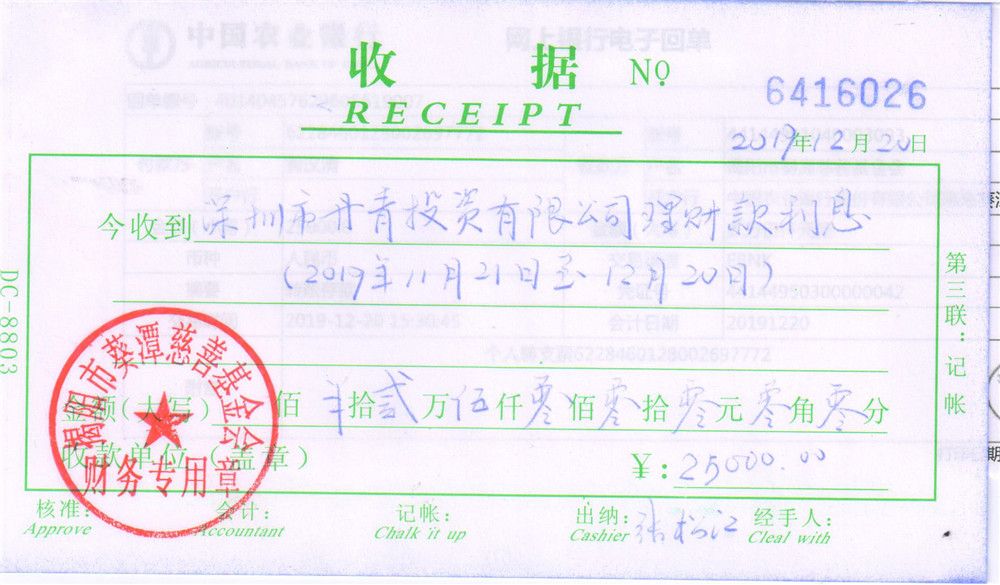 收 据 №
6416026
RECEIPT
2019年12月20日
今收到 深圳市丹青投资有限公司理财款利息
(2019年11月21日至12月20日)
DC-8803
第三联：记帐
揭阳市葵潭慈善基金会
财务专用章
金额(大写) 佰 拾贰万伍仟零佰零拾零元零角零分
收款单位（盖章） ¥: 25000.00
核准: 会计: 记帐: 出纳: 张松江 经手人:
Approve Accountant Chalk it up Cashier Cleal with
中国农业银行 网上银行电子回单
2019-12-20 15:30:45 会计日期 20191220